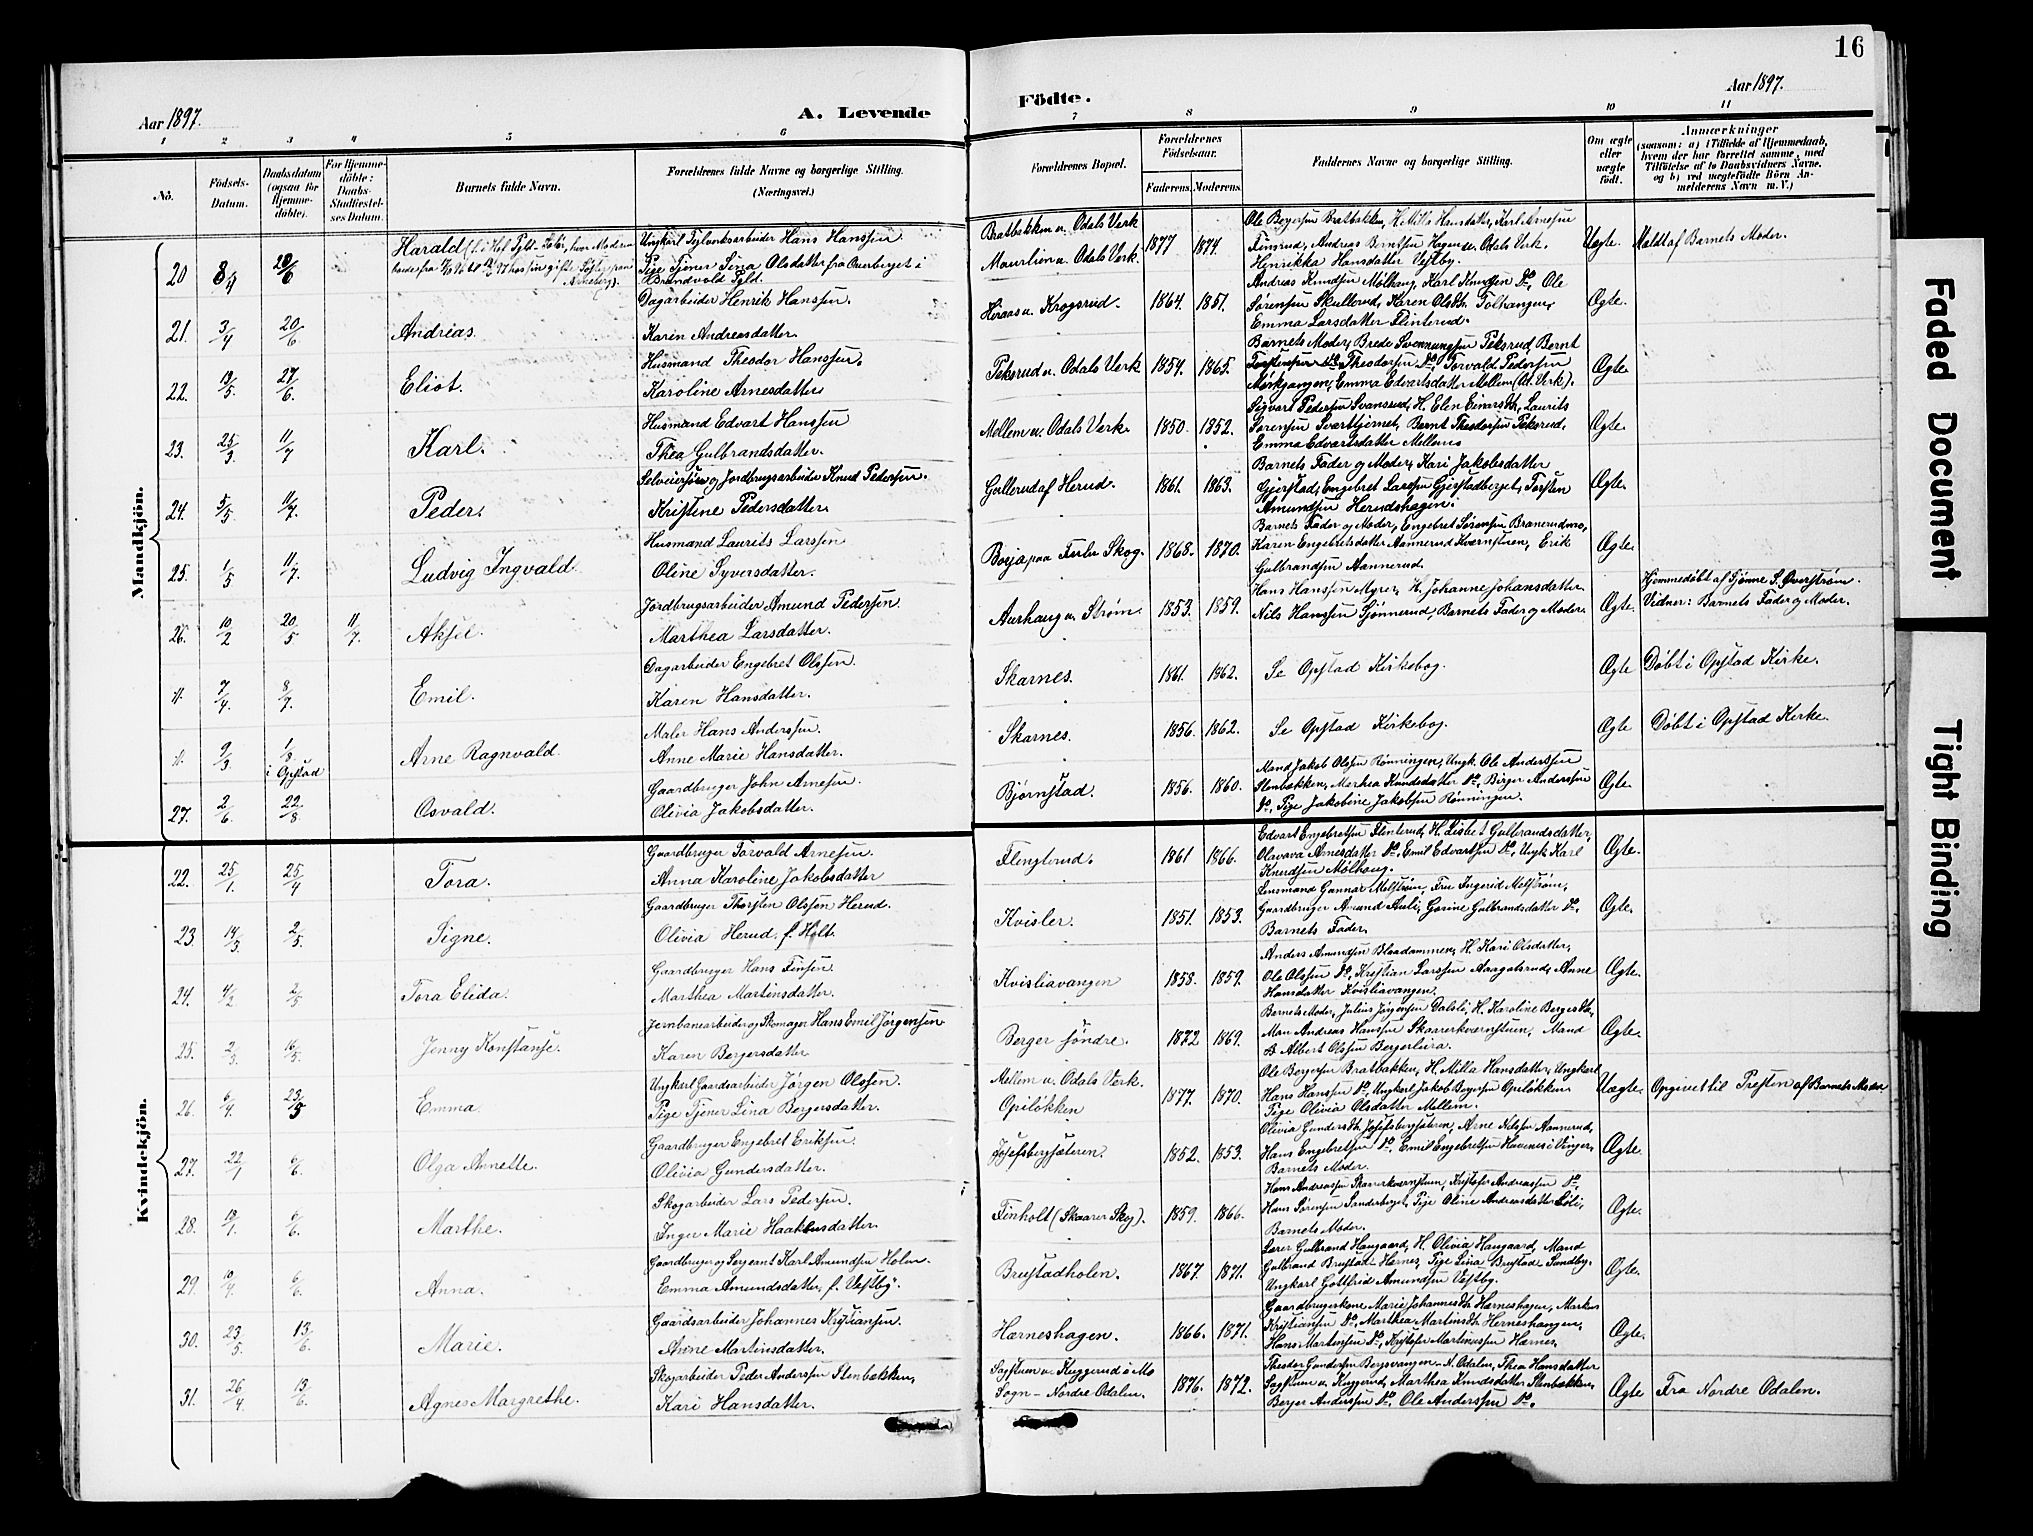 16
Aar 1897.
A. Levende
Födte.
Aar 1897.
1 2 3 4 5 6 7 8 9 10 11
No.
Födsels-Datum.
Daabsdatum (ogsaa for Hjemmedöbte).
For Hjemmedöbte: Daabs-Stadfæstelses Datum.
Barnets fulde Navn.
Forældrenes fulde Navne og borgerlige Stilling. (Næringsvei.)
Forældrenes Bopæl.
Forældrenes Födselsaar.
Faderens. Moderens.
Faddernes Navne og borgerlige Stilling.
Om ægte eller uægte födt.
Anmærkninger
(saasom: a) i Tilfælde af Hjemmedaab, hvem der har forrettet samme, med Tilföielse af to Daabsvidners Navne, og b) ved uægtefödte Börn Anmelderens Navn m. V.)
Mandkjön.
20 3/4 20/6 Harald
Ungkarl Tylverksarbeider Hans Hanssen
Pige Tjener Lina Olsdatter fra Overberget i
Brandvold Pgld.
Bratbakken u. Odals Verk
Maurlien u. Odals Verk.
1877 1874.
Ole Bergersen Bratbakken, H. Milla Hansdatter, Karl Arnesen
Finsrud, Andreas Berntsen Hagen u. Odals Verk.
Henrikka Hansdatter Vestby.
Uægte. Meldt af Barnets Moder.
21. 3/4 20/6 Andreas.
Dagarbeider Henrik Hanssen.
Karen Andreasdatter.
Heraas u. Krogsrud. 1864 1851.
Andreas Knudsen Mølhaug, Karl Knudsen Do, Ole
Sørensen Skullerud, Karen Olsdtr. Toltangen,
Emma Larsdatter Flinterud.
Ægte.
22. 19/5. 27/6. Eliot.
Husmand Theodor Hanssen.
Karoline Arnesdatter
Peksrud u. Odals Verk 1854. 1865.
Barnets Moder, Brede Svennungsen Peksrud, Bernt
Theodorsen Do, Torvald Pedersen
Mørkgangen, Emma Edvartsdatter Mellem (Od. Verk).
Ægte.
23. 25/3 11/7 Karl.
Husmand Edvart Hanssen
Thea Gulbrandsdatter.
Mellem u. Odals Verk. 1850. 1852.
Sigvart Pedersen Svansrud, H. Elen Einarsdtr, Laurits
Sørensen Svarttjernet, Bernt Theodorsen Peksrud,
Emma Edvartsdatter Mellem
Ægte.
24. 5/5 11/7. Peder.
Selveiersøn og Jordbrugsarbeider Knud Pedersen.
Kristine Pedersdatter.
Gullerud af Herud. 1861. 1863.
Barnets Fader og Moder, Kari Jakobsdatter
Gjerstad, Engebret Larsen Gjerstadberget, Torsten
Amundsen Herudshagen.
Ægte.
25. 1/5 11/7. Ludvig Ingvald.
Husmand Laurits Larssen
Oline Syversdatter.
Børja paa Fulu Skog. 1868. 1870.
Barnets Fader og Moder, Engebret Sørensen Branerudmo,
Karen Engebretsdatter Aannerud Kværnstuen, Erik
Gulbrandsen Aannerud.
Ægte.
26. 10/2 20/5 11/7. Aksel.
Jordbrugsarbeider Amund Pedersen.
Marthea Larsdatter.
Aurhaug u. Strøm. 1853. 1859.
Hans Hanssen Myrer, H. Johanne Johansdatter.
Nils Hanssen Sjønnerud, Barnets Fader og Moder.
Ægte. Hjemmedøbt af Gjønne S. Overstrøm.
Vidner: Barnets Fader og Moder.
". 7/4. 8/7. Emil.
Dagarbeider Engebret Olssen.
Karen Hansdatter.
Skarnes. 1861. 1862.
Se Opstad Kirkebog.
Ægte Døbt i Opstad Kirke.
". 9/3. 1/8 i Opstad Arne Ragnvald.
Maler Hans Anderssen.
Anne Marie Hansdatter.
Skarnes. 1856. 1862.
Se Opstad Kirkebog.
Ægte Døbt i Opstad Kirke.
27. 2/6. 22/8 Osvald.
Gaardbruger John Arnesen.
Olivia Jakobsdatter.
Bjørnstad. 1856. 1860.
Mand Jakob Olssen Rønningen, Ungk. Ole Anderssen
Stenbækken, Marthea Knudsdatter Do, Birger Anderssen
Do, Pige Jakobine Jakobsen Rønningen.
Ægte.
Kvindekjön.
22. 25/1. 25/4 Tora.
Gaardbruger Torvald Arnesen.
Anna Karoline Jakobsdatter
Flengterud. 1861 1866.
Edvart Engebretsen Flinterud, H. Lisbet Gulbrandsdatter,
Olavava Arnesdatter Do, Emil Edvartsen Do, Ungk. Karl
Knudsen Mølhaug.
Ægte.
23. 14/3 2/5. Signe.
Gaardbruger Thorsten Olssen Herud.
Olivia Herud, f. Holt.
Kvisler. 1851. 1853.
Lensmand Gunnar Melstrøm, Fru Ingerid Melstrøm,
Gaardbruger Amund Auli, Gorine Gulbrandsdatter Do,
Barnets Fader.
Ægte.
24. 4/2 2/5 Tora Elida.
Gaardbruger Hans Finsen.
Marthea Martinsdatter.
Kvisliavangen 1858. 1859.
Anders Amundsen Blaadammen, H. Kari Olsdatter,
Ole Olssen Do, Kristian Larssen Aaagotsrud, Anne
Hansdatter Kvisliavangen.
Ægte.
25. 2/3. 16/5. Jenny Konstanse.
Jernbanearbeider og Skomager Hans Emil Jørgensen
Karen Bergersdatter
Berger søndre. 1872 1869.
Barnets Moder, Julius Jørgensen Dalsli, H. Karoline Bergersdtr,
Man Andreas Hanssen Skaarerkværnstuen, Mand
B. Albert Olssen Bergerleira.
Ægte.
26. 6/4. 23/5 Emma.
Ungkarl Gaardsarbeider Jørgen Olssen.
Pige Tjener Lina Bergersdatter.
Mellem u. Odals Verk.
Opiløkken 1877. 1870.
Ole Bergersen Bratbakken, H. Milla Hansdatter, Ungkarl
Hans Hanssen Do, Ungkarl Jakob Bergersen Opiløkken
Pige Olivia Olsdatter Mellem.
Uægte. Opgivet til Presten af Barnets Moder.
27. 22/1 6/6. Olga Annette.
Gaardbruger Engebret Eriksen.
Olivia Gundersdatter.
Josefsbergsæteren. 1852. 1853.
Olivia Gundersdtr. Josefsbergsæteren, Arne Nilssen Aannerud,
Hans Engebretsen Do, Emil Engebretsen Havenes i Vinger,
Barnets Moder.
Ægte.
28. 19/1. 6/6. Marthe.
Skogarbeider Lars Pedersen.
Inger Marie Haakensdatter.
Finholt (Skaarer Skog). 1859. 1866.
Hans Andreassen Skaarerkværnstuen, Kristofer Andreassen Do,
Hans Sørensen Sanderberget, Pige Oline Andreasdatter Løli,
Barnets Moder.
Ægte.
29. 10/4. 6/6. Anna.
Gaardbruger og Sergeant Karl Amundsen Holen.
Emma Amundsdatter, f. Vestby.
Brustadholen. 1867. 1871.
Lærer Gulbrand Haugaard, H. Olivia Haugaard, Mand
Gulbrand Brustad Hernes, Pige Lina Brustad Sundby.
Ungkarl Gottfrid Amundsen Vestby.
Ægte.
30. 23/5 13/6. Marie.
Gaardsarbeider Johannes Kristiansen.
Anne Martinsdatter.
Hærneshagen. 1866. 1871.
Gaardbrugerkone Marie Johannesdtr. Hærneshagen, Markus
Kristiansen Do, Marthea Martinsdtr. Herneshaugen,
Hans Martinsen Do, Kristofer Martinussen Hærnes.
Ægte.
31. 26/4 13/6. Agnes Margrethe.
Skogarbeider Peder Anderssen Stenbækken,
Kari Hansdatter.
Sagstuen u. Kuggerud i Mo
Sogn - Nordre Odalen. 1876. 1872.
Theodor Gundersen Bergsvangen - N. Odalen, Thea Hansdatter
Sagstuen u. Kuggerud, Marthea Knudsdatter Stenbækken,
Berger Anderssen Do, Ole Anderssen Do.
Ægte Fra Nordre Odalen.
Faded Document
Tight Binding